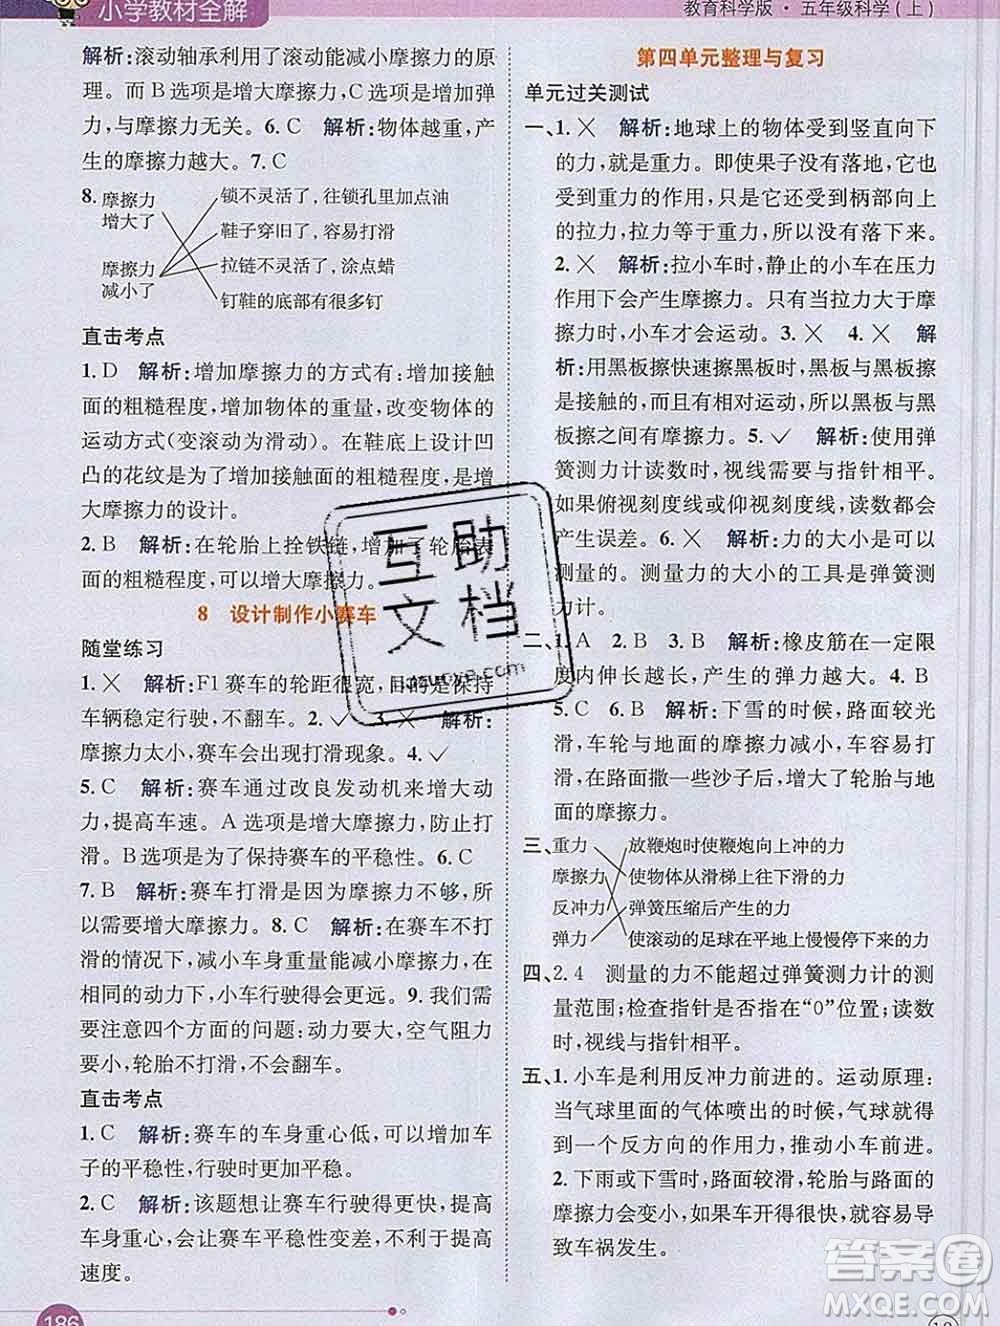 小学教材全解
教育科学版·五年级科学(上)
解析:滚动轴承利用了滚动能减小摩擦力的原
理。而 B 选项是增大摩擦力,C 选项是增加弹
力,与摩擦力无关。6. C 解析:物体越重,产
生的摩擦力越大。7. C
8. 摩擦力
增大了
摩擦力
减小了
锁不灵活了,往锁孔里加点油
鞋子穿旧了,容易打滑
拉链不灵活了,涂点蜡
钉鞋的底部有很多钉
直击考点
1. D 解析:增加摩擦力的方式有:增加接触
面的粗糙程度,增加物体的重量,改变物体的
运动方式(变滚动为滑动)。在鞋底上设计凹
凸的花纹是为了增大接触面的粗糙程度,是增
大摩擦力的设计。
2. B 解析:在轮胎上拴铁链,增加了轮胎表
面的粗糙程度,可以增大摩擦力。
8 设计制作小赛车
随堂练习
1. × 解析:F1 赛车的轮距很宽,目的是保持
车辆稳定行驶,不翻车。2. √ 3. × 解析:
摩擦力太小,赛车会出现打滑现象。4. √
5. C 解析:赛车通过改良发动机来增大动
力,提高车速。A 选项是增大摩擦力,防止打
滑。B 选项是为了保持赛车的平稳性。6. C
7. B 解析:赛车打滑是因为摩擦力太小,所以
需要增大摩擦力。8. C 解析:在赛车不打滑
的情况下,减小车身重量能减小摩擦力,在
相同的动力下,小车行驶得会更远。9. 我们需
要注意四个方面的问题:动力要大,空气阻力
要小,轮胎不打滑,不容易翻车。
直击考点
1. C 解析:赛车的车身重心低,可以增加车
子的平稳性,行驶时更加平稳。
2. C 解析:该题想让赛车行驶得更快,提高
车身重心,会让赛车平稳性变差,不利于提高
速度。
186
第四单元整理与复习
单元过关测试
一、1. × 解析:地球上的物体受到竖直向下
的力,就是重力。即使果子没有落地,它仍然
受到重力的作用,只是它还受到柄部向上
的拉力,拉力等于重力,所以没有落下来。
2. × 解析:拉小车时,静止的小车在压力
作用下会产生摩擦力。只有当拉力大于摩
擦力时,小车才会运动。3. × 4. × 解
析:用黑板擦快速擦黑板时,黑板与黑板擦
接触并有相对运动,所以黑板与黑
板擦之间有摩擦力。5. √ 解析:使用弹
簧测力计读数时,视线需要与指针相平。
如果俯视刻度线或仰视刻度线,读数都会
产生误差。6. × 解析:力的大小是可以
测量的。测量力的大小的工具是弹簧测
力计。
二、1. A 2. B 3. B 解析:橡皮筋在一定限
度内伸长越长,产生的弹力越大。4. B
5. C 6. B 解析:下雪的时候,路面较光
滑,车轮与地面的摩擦力减小,车容易打
滑,在路面撒一些沙子后,增大了轮胎与地
面的摩擦力。
三、重力
摩擦力
反冲力
弹力
放鞭炮时使鞭炮向上冲的力
使物体从滑梯上往下滑的力
弹簧压缩后产生的力
使滚动的足球在平地上慢慢停下来的力
四、2.4 测量的力不能超过弹簧测力计的测
量范围;检查指针是否指在“0”位置;读数
时,视线与指针相平。
五、1. 小车是利用反冲力前进的。运动原理:
当气球里面的气体喷出的时候,气球会有
一个反方向的作用力,推动小车前进。
2. 下雨或下雪时,路面较滑,轮胎与路面的
摩擦力会变小,如果车开得很快,就容易导
致车祸发生。
互助
文档
答案圈
MXQE.COM